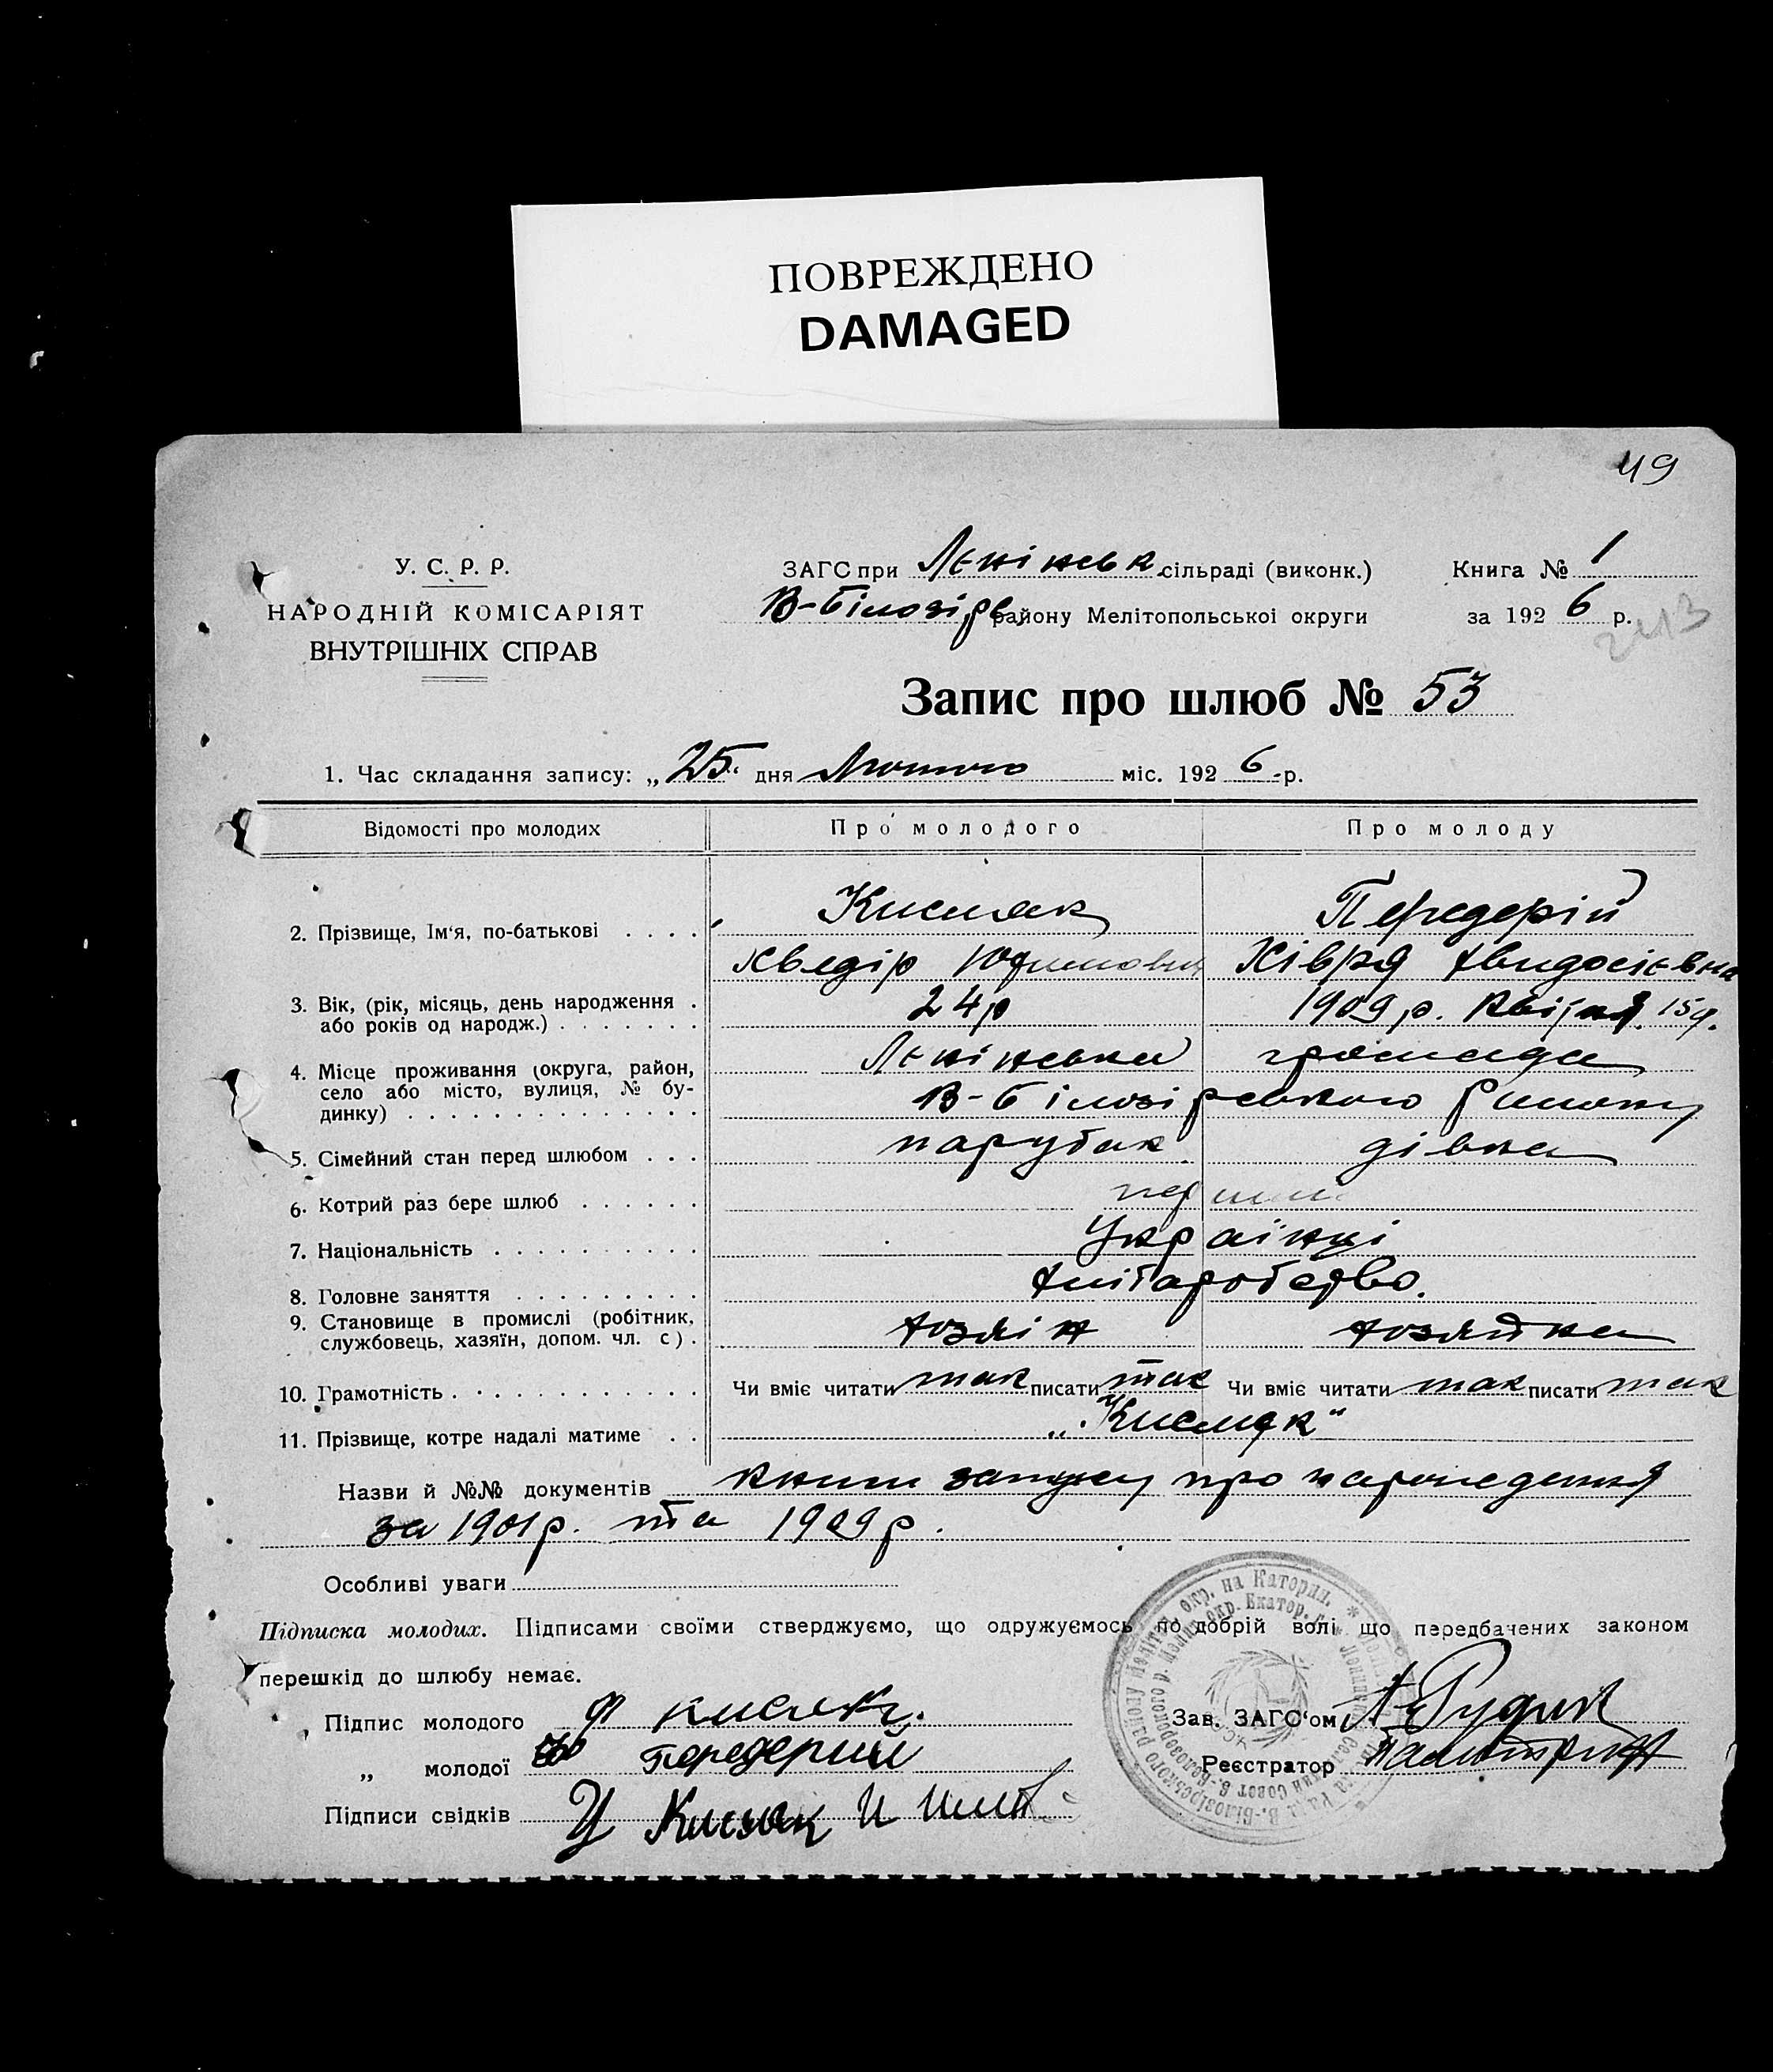 ПОВРЕЖДЕНО
DAMAGED
49
У. С. Р. Р.
НАРОДНІЙ КОМІСАРІЯТ
ВНУТРІШНІХ СПРАВ
ЗАГС при Ленінськ. сільраді (виконк.)
В-Білозірс. району Мелітопольської округи
Книга № 1
за 1926 р.
Запис про шлюб № 53
1. Час складання запису: „25“ дня Лютого міс. 1926 р.
Відомості про молодих Про молодого Про молоду
2. Прізвище, Ім‘я, по-батькові . . . . Кисляк Передерій
Хведір Юхимович Хівря Авидосієвна
3. Вік, (рік, місяць, день народження . 24р 1909 р. Квітня 15 д.
або років од народж.) . . . . . . .
4. Місце проживання (округа, район, Ленінська громада
село або місто, вулиця, № бу-
динку) . . . . . . . . . . . . . . В-Білозірського Району
5. Сімейний стан перед шлюбом . . . парубак дівка
6. Котрий раз бере шлюб . . . . . . перший
7. Національність . . . . . . . . . . Українці
8. Головне заняття . . . . . . . . . хліборобство.
9. Становище в промислі (робітник, хозяін хозяйка
службовець, хазяїн, допом. чл. с) .
10. Грамотність . . . . . . . . . . . . Чи вміє читати так писати так Чи вміє читати так писати так
11. Прізвище, котре надалі матиме . . „Кисляк“
Назви й №№ документів книги запису про народження
за 1901 р. та 1909 р.
Особливі уваги
Підписка молодих. Підписами своїми стверджуємо, що одружуємось по добрій волі що передбачених законом
перешкід до шлюбу немає.
Підпис молодого Ф кисляк.
„ молодої Передерий
Підписи свідків У Кисляк И
Зав. ЗАГС‘ом Рудик
Реєстратор